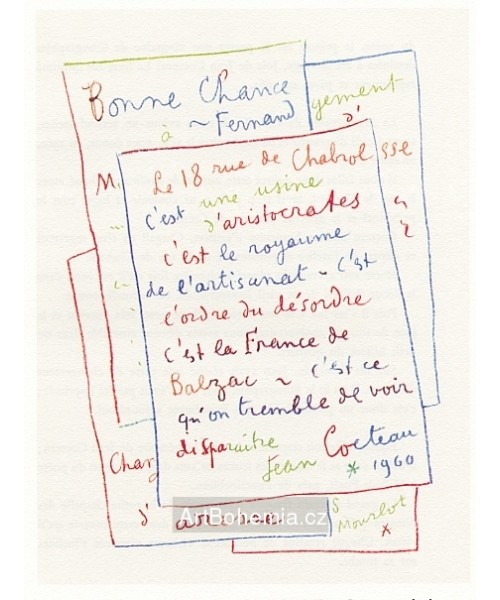 Bonne Chance
à ~ Fernand
gement
d'
M
sse
Le 18 rue de Chabrol
c'est une usine
d'aristocrates
c'est le royaume
de l'artisanat ~ c'est
l'ordre du désordre
c'est la France de
Balzac ~ c'est ce
qu'on tremble de voir
disparaître
Jean Cocteau
* 1960
Chan
d'
s
Mourlot
*
ArtBohemia.cz